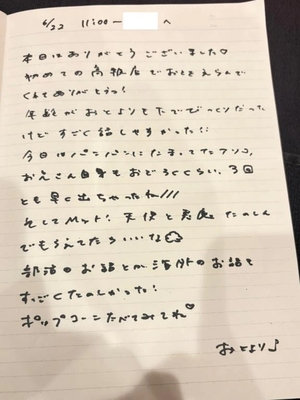 6/22 11:00ー へ
本日はありがとうございました♡
初めての高級店でおとをえらんで
くれてありがとうっ!
年齢がおとよりも下でびっくりだった
けどすごく話しやすかった!!
今日はパンパンにたまってた
おえさん自身もおどろくくらい、3回
とも早く出ちゃったね///
そしてMット! 天使と悪魔たのしん
でもらえてたらいいな
部活のお話とか海外のお話も
すっごくたのしかった!
ポップコーンたべてみてね♡
おとより♪